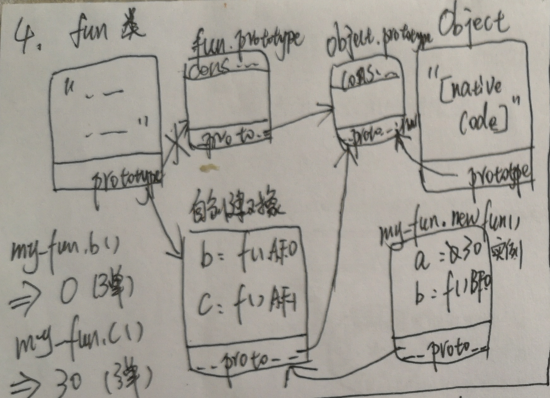 4. fun 类
fun.prototype
cons...
__proto__
Object.prototype
cons...
__proto__
Object
"[native
code]"
prototype
"
"
prototype
b = f() AF0
c = f() AF1
__proto__
my_fun.new fun()
实例
a = 30
b = f() BF0
__proto__
my_fun.b()
=> 0 (弹)
my_fun.c()
=> 30 (弹)